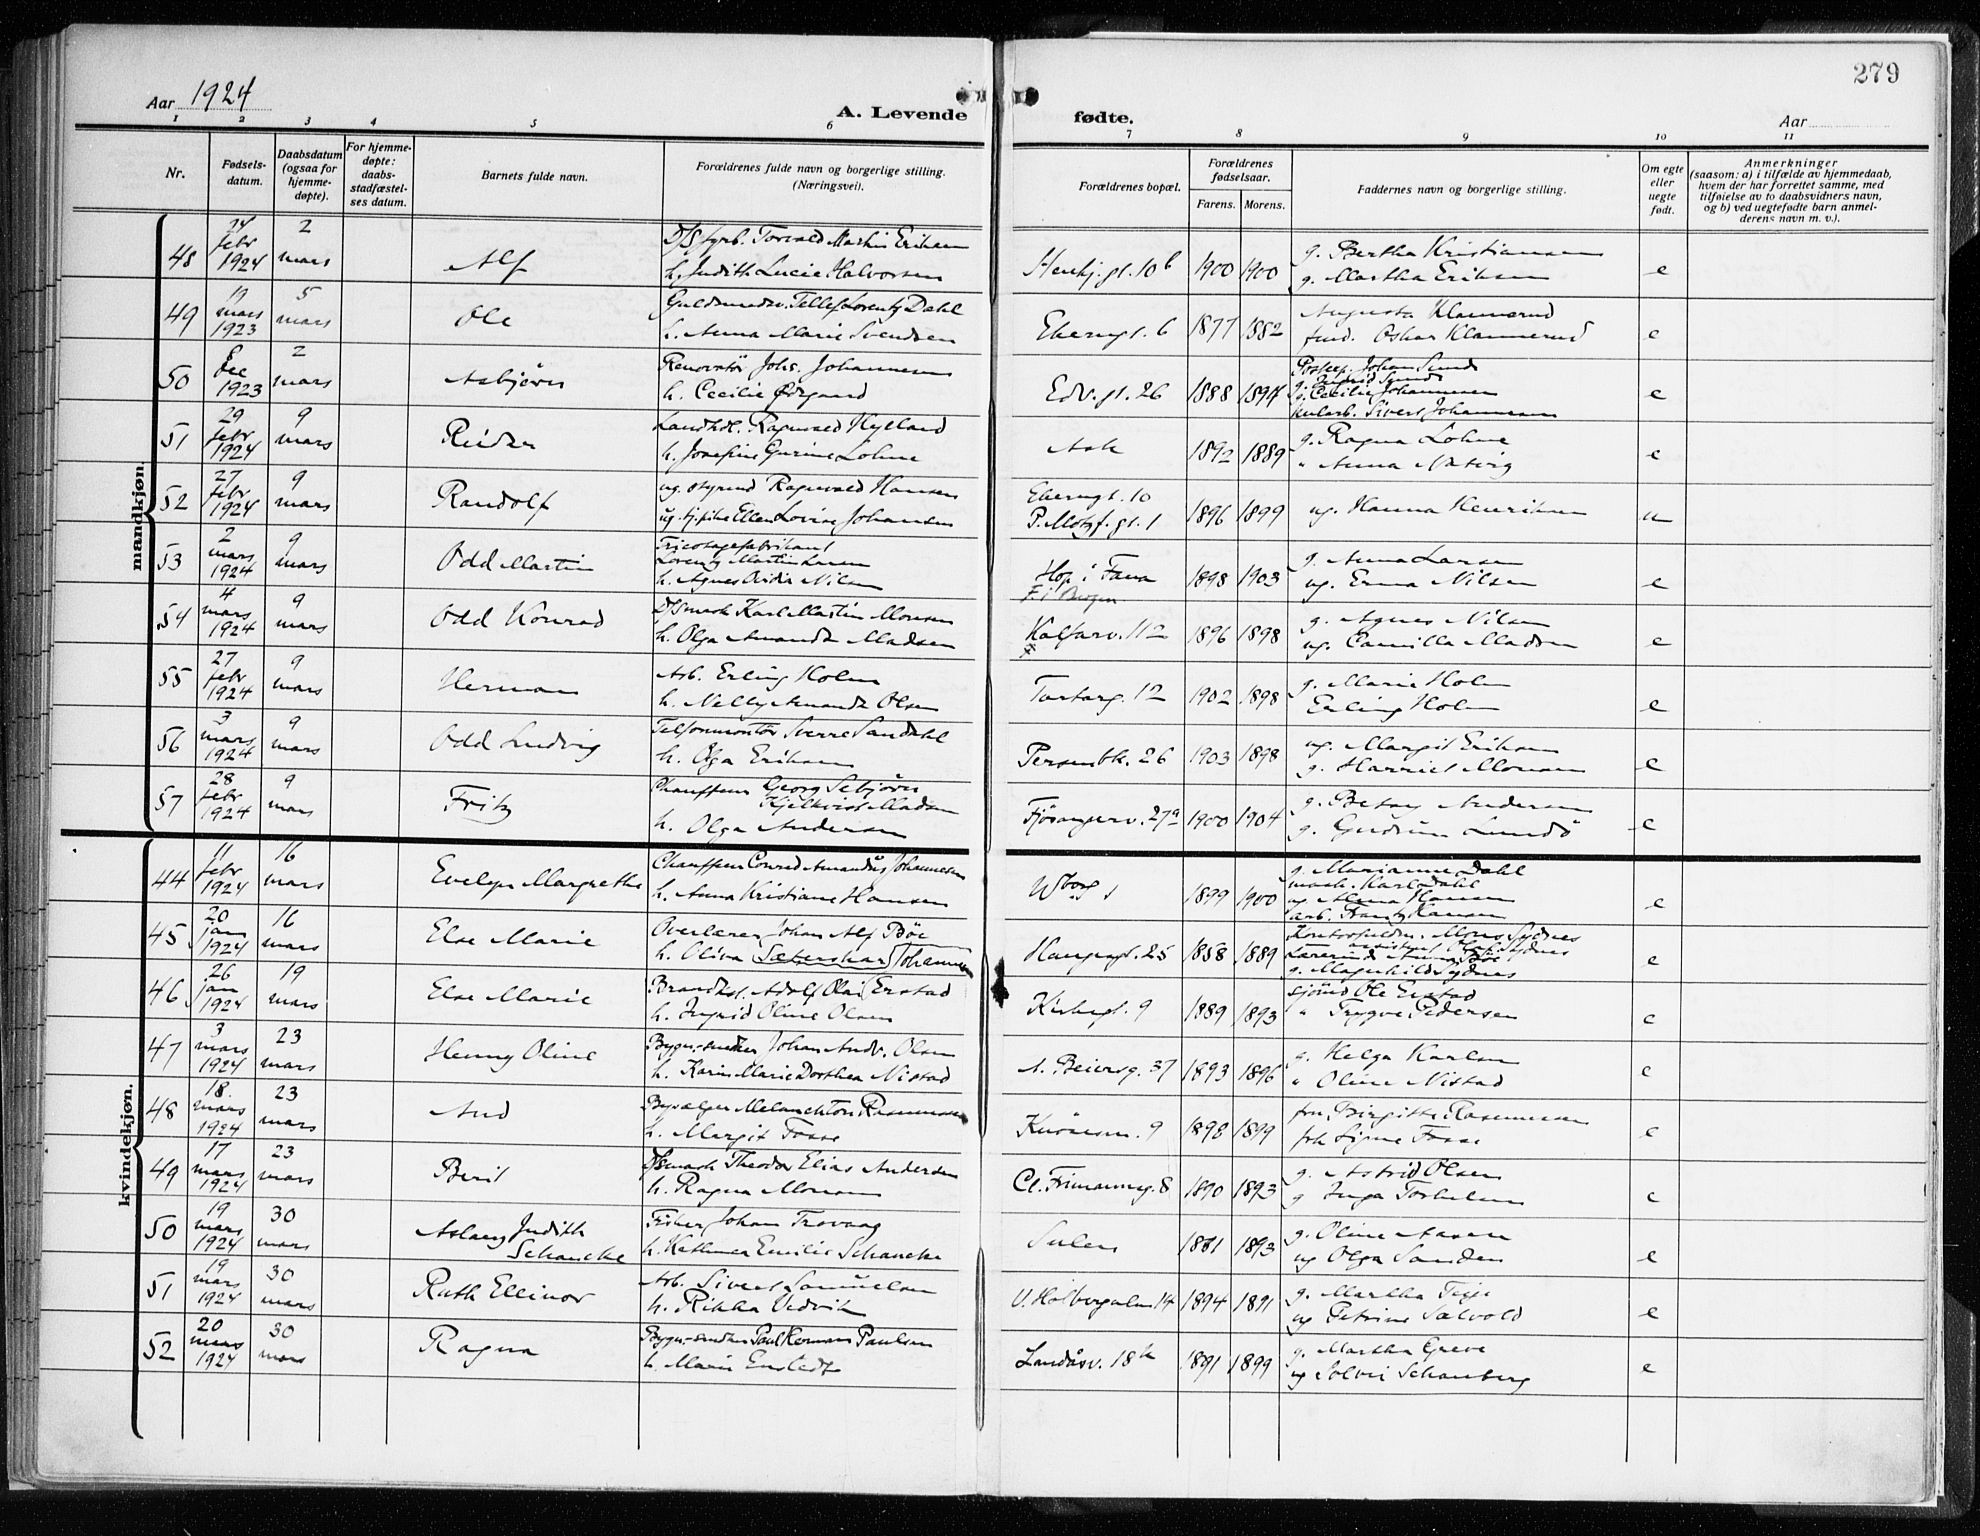 279
Aar 1924
A. Levende fødte.
Aar
1 2 3 4 5 6 7 8 9 10 11
Nr.
Fødsels-
datum.
Daabsdatum
(ogsaa for
hjemme-
døpte).
For hjemme-
døpte:
daabs-
stadfæstel-
ses datum.
Barnets fulde navn.
Forældrenes fulde navn og borgerlige stilling.
(Næringsvei).
Forældrenes bopæl.
Forældrenes
fødselsaar.
Farens. Morens.
Faddernes navn og borgerlige stilling.
Om egte
eller
uegte
født.
Anmerkninger
(saasom: a) i tilfælde av hjemmedaab,
hvem der har forrettet samme, med
tilføielse av to daabsvidners navn,
og b) ved uegtefødte barn anmel-
derens navn m. v.).
mandkjøn.
48 24 febr 1924 2 mars Alf
D/S fyrb. Torvald Martin Eriksen
h. Judith Lucie Halvorsen
10b 1900 1900
g. Bertha Kristiansen
g. Martha Eriksen
e
49 19 mars 1923 5 mars Ole
Guldsmedsv. Tellef Lorentz Dahl
h. Anna Marie Svendsen
6 1877 1882
Augusta Klannerud
Oskar Klannerud
e
50 8 dec 1923 2 mars Asbjørn
Renovatør Johs. Johannesen
h. Cecilie Ødegaard
Edv. gt. 26 1888 1894
Johan Sund
g. Ingrid Sund
g. Cecilie Johannesen
Sivert Johannesen
e
51 29 febr 1924 9 mars Reidar
Landhdl. Ragnvald Hylland
h. Josefine Gurine Lohne
Ask 1892 1889
g. Ragna Lohne
" Anna
e
52 27 febr 1924 9 mars Randolf
ug. Ragnvald Hansen
ug. tj.pike Ellen Lovise Johansen
Eberngt. 10
P. Motzf. gt. 1 1896 1899
ug. Hanna Henriksen
u
53 2 mars 1924 9 mars Odd Martin
Tricotagefabrikant
Lorentz Martin Larsen
h. Agnes Nilsen
Hop i Fana
F. i Bergen
1898 1903
g. Anna Larsen
ug. Erna Nilsen
e
54 4 mars 1924 9 mars Odd Konrad
D/S mask Karl Martin Monsen
h. Olga Amanda Madsen
Kalfarv. 112 1896 1898
g. Agnes Nilsen
ug. Camilla Madsen
e
55 27 febr 1924 9 mars Herman
Arb. Erling Holm
h. Nelly Amanda Olsen
Tartarg. 12 1902 1898
g. Marie Holm
Erling Holm
e
56 3 mars 1924 9 mars Odd Ludvig
Telefonmontør Sverre Sandahl
h. Olga Eriksen
Persenbk. 26 1903 1898
ug. Margit Eriksen
g. Harriet Monsen
e
57 28 febr 1924 9 mars Fritz
Chauffeur Georg Sebjørn
Kjelkvist Madsen
h. Olga Andersen
Fjøsangerv. 27a 1900 1904
g. Betsy Andersen
g. Gudrun Lundø
e
kvindekjøn.
44 11 febr 1924 16 mars Evelyn Margrethe
Chauffeur Conrad Amandus Johannesen
h. Anna Kristiane Hansen
1899 1900
g. Marianne Dahl
mask. Karl Dahl
ug Alma Hansen
arb. Frantz Hansen
e
45 20 jan 1924 16 mars Else Marie
Overlærer Johan Alf Bøe
h. Oliva Sæterskar Johannesen
Haugegt. 25 1858 1889
Mons Sydnes
assistent Olaf Sydnes
Lærerinde Anna Bøe
g. Magnhild Sydnes
e
46 26 jan 1924 19 mars Else Marie
Brandkst. Adolf Olai Erstad
h. Ingrid Oline Olsen
Kirkegt. 9 1889 1893
sjømd Ole Erstad
" Trygve Pedersen
e
47 3 mars 1924 23 mars Henny Oline
Bygn.-snedker Johan Andr. Olsen
h. Karin Marie Dorthea Nistad
A. Beiersg. 37 1893 1896
g. Helga Karlsen
" Oline Nistad
e
48 18 mars 1924 23 mars Aud
Bysælger Melanchton Rasmussen
h. Margit Fosse
9 1898 1899
fru Birgitte Rasmussen
frk Signe Fosse
e
49 17 mars 1924 23 mars Beril
D/S mask Theodor Elias Andersen
h. Ragna Monsen
Cl. Frimanns g. 8 1890 1893
g. Astrid Olsen
g Inga Torkelsen
e
50 19 mars 1924 30 mars Aslaug Judith
Schancke
Fisker Johan Trovaag
h. Kathinca Emilie Schancke
Sulen 1881 1893
g. Oline Aasen
ug Olga Sanden
e
51 19 mars 1924 30 mars Ruth Ellinor
Arb. Sivert Samuelsen
h. Rikka Vedvik
U. Holbergsalm 14 1894 1891
g. Martha Teije
ug Petrine Salvold
e
52 20 mars 1924 30 mars Ragna
Bygn-snedker Paul Herman Paulsen
h. Marie Enstedt
Landåsv. 18 1891 1899
g. Martha Greve
ug Solvei Schanberg
e